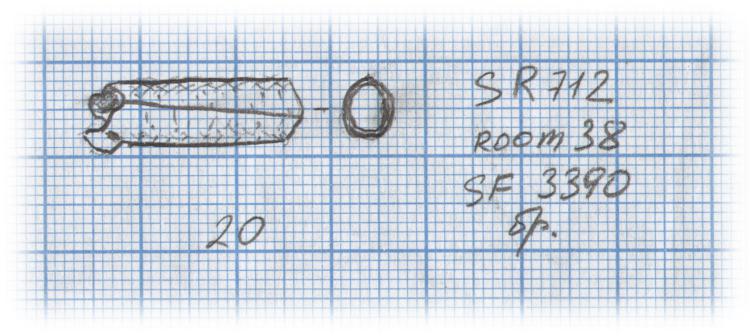 SR 712
ROOM 38
SF 3390
бр.
20